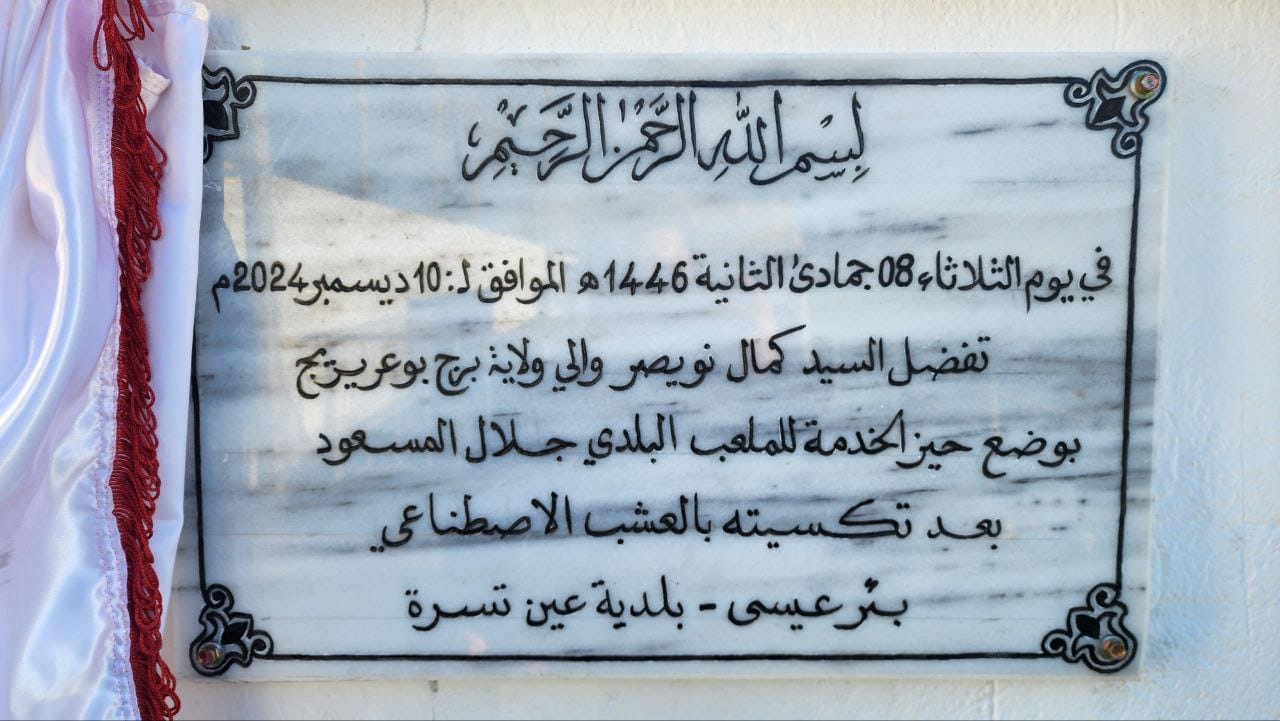 بِسْمِ اللهِ الرَّحْمٰنِ الرَّحِيْمِ
في يوم الثلاثاء 08 جمادى الثانية 1446هـ الموافق لـ: 10 ديسمبر 2024م
تفضل السيد كمال نويصر والي ولاية برج بوعريريج
بوضع حيز الخدمة للملعب البلدي جلال المسعود
بعد تكسيته بالعشب الاصطناعي
بئر عيسى - بلدية عين تسرة